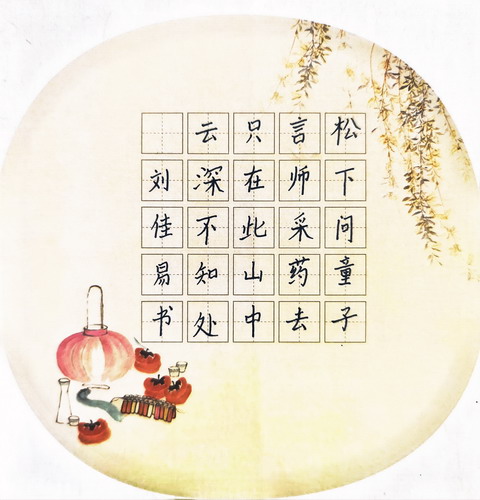 松下问童子
言师采药去
只在此山中
云深不知处
刘佳易书